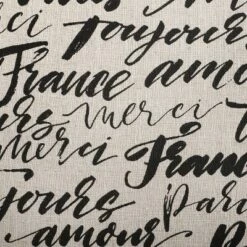 Merci
Toujours
France amo
urs merci
Merci Franc
jours
Pari
amour